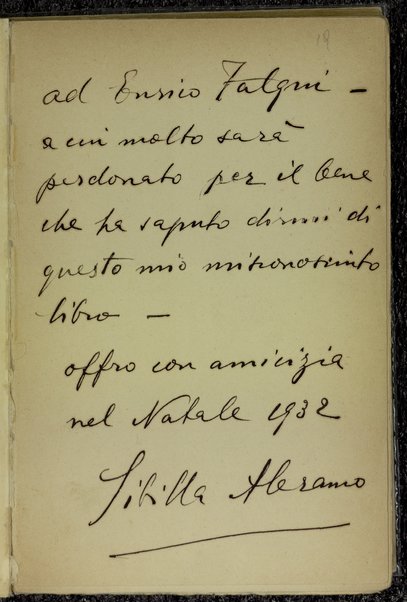 19
ad Enrico Falqui —
a cui molto sarà
perdonato per il bene
che ha saputo dirmi di
questo mio misconosciuto
libro —
offro con amicizia
nel Natale 1932
Sibilla Aleramo